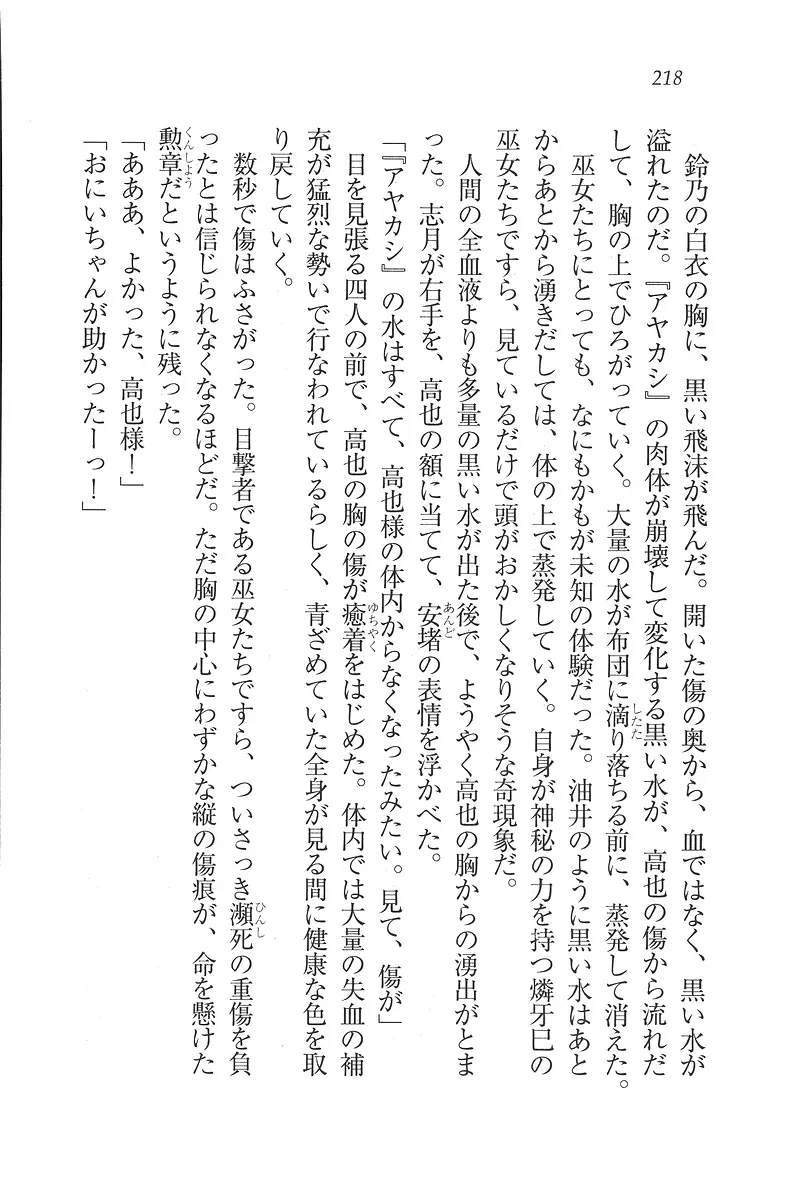 218
鈴乃の白衣の胸に、黒い飛沫が飛んだ。開いた傷の奥から、血ではなく、黒い水が
溢れたのだ。『アヤカシ』の肉体が崩壊して変化する黒い水が、高也の傷から流れだ
して、胸の上でひろがっていく。大量の水が布団に滴り落ちる前に、蒸発して消えた。
巫女たちにとっても、なにもかもが未知の体験だった。油井のように黒い水はあと
からあとから湧きだしては、体の上で蒸発していく。自身が神秘の力を持つ燐牙巳の
巫女たちですら、見ているだけで頭がおかしくなりそうな奇現象だ。
人間の全血液よりも多量の黒い水が出た後で、ようやく高也の胸からの湧出がとま
った。志月が右手を、高也の額に当てて、安堵の表情を浮かべた。
「『アヤカシ』の水はすべて、高也様の体内からなくなったみたい。見て、傷が」
目を見張る四人の前で、高也の胸の傷が癒着をはじめた。体内では大量の失血の補
充が猛烈な勢いで行なわれているらしく、青ざめていた全身が見る間に健康な色を取
り戻していく。
数秒で傷はふさがった。目撃者である巫女たちですら、ついさっき瀕死の重傷を負
ったとは信じられなくなるほどだ。ただ胸の中心にわずかな縦の傷痕が、命を懸けた
勲章だというように残った。
「あああ、よかった、高也様！」
「おにいちゃんが助かったーっ！」